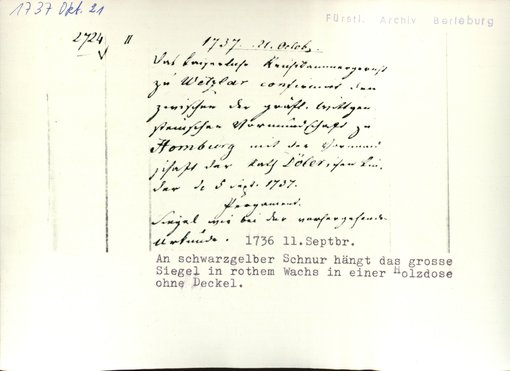 1737 Okt. 21
Fürstl. Archiv Berleburg
2724 II
1737. 21. Octob.
Das kaiserliche Reichskammergericht
zu Wetzlar confirmirt den
zwischen der gräfl. Wittgen
steinischen Vormundschaft zu
Homburg mit der Vormund
schaft der Kath
der de 5 sept. 1737.
Pergament.
Siegel wie bei der vorhergehenden
Urkunde. 1736 11.Septbr.
An schwarzgelber Schnur hängt das grosse
Siegel in rothem Wachs in einer Holzdose
ohne Deckel.